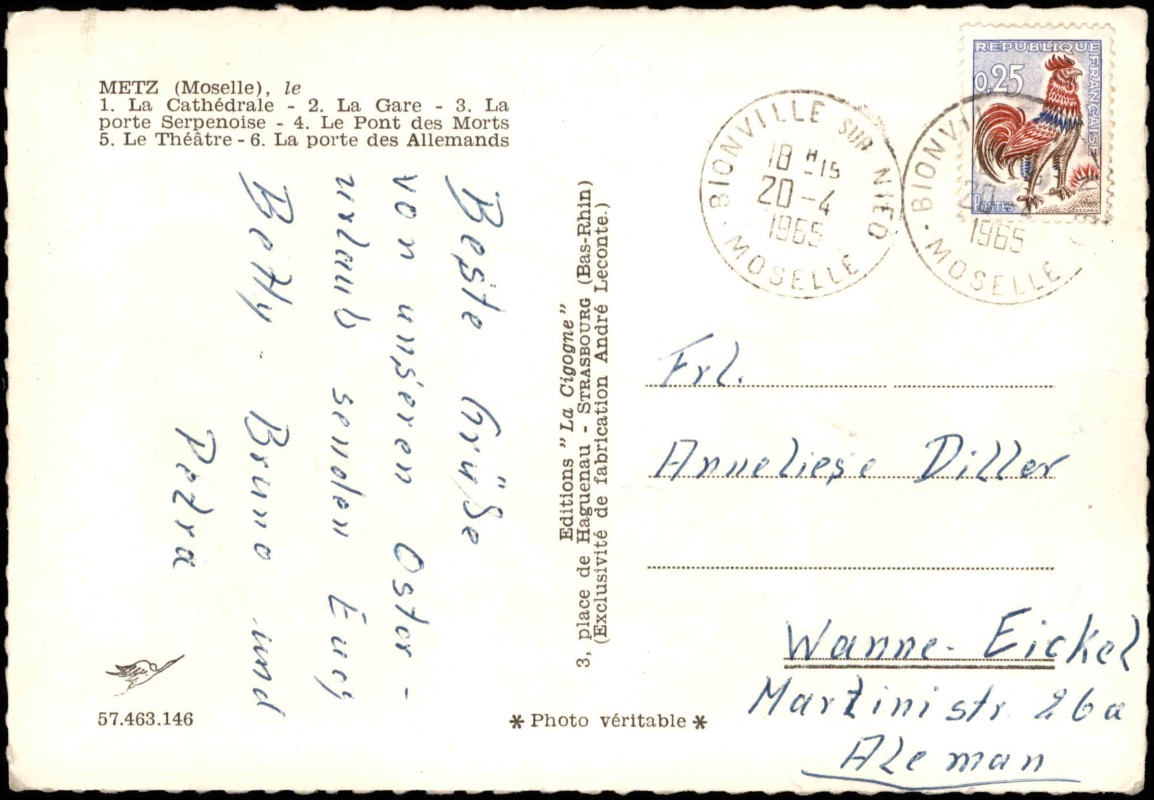 METZ (Moselle), le
1. La Cathédrale - 2. La Gare - 3. La
porte Serpenoise - 4. Le Pont des Morts
5. Le Théâtre - 6. La porte des Allemands
Beste Grüße
von unseren Oster-
urlaub senden Euch
Betty - Bruno und
Petra
57.463.146
Editions "La Cigogne"
3, place de Haguenau - STRASBOURG (Bas-Rhin)
(Exclusivité de fabrication André Leconte.)
* Photo véritable *
REPUBLIQUE
FRANÇAISE
0,25
POSTES
BIONVILLE SUR NIED
18 H 15
20-4
1965
MOSELLE
BIONVI
20
1965
MOSELLE
Frl.
Anneliese Diller
Wanne-Eickel
Martinistr. 26a
Aleman